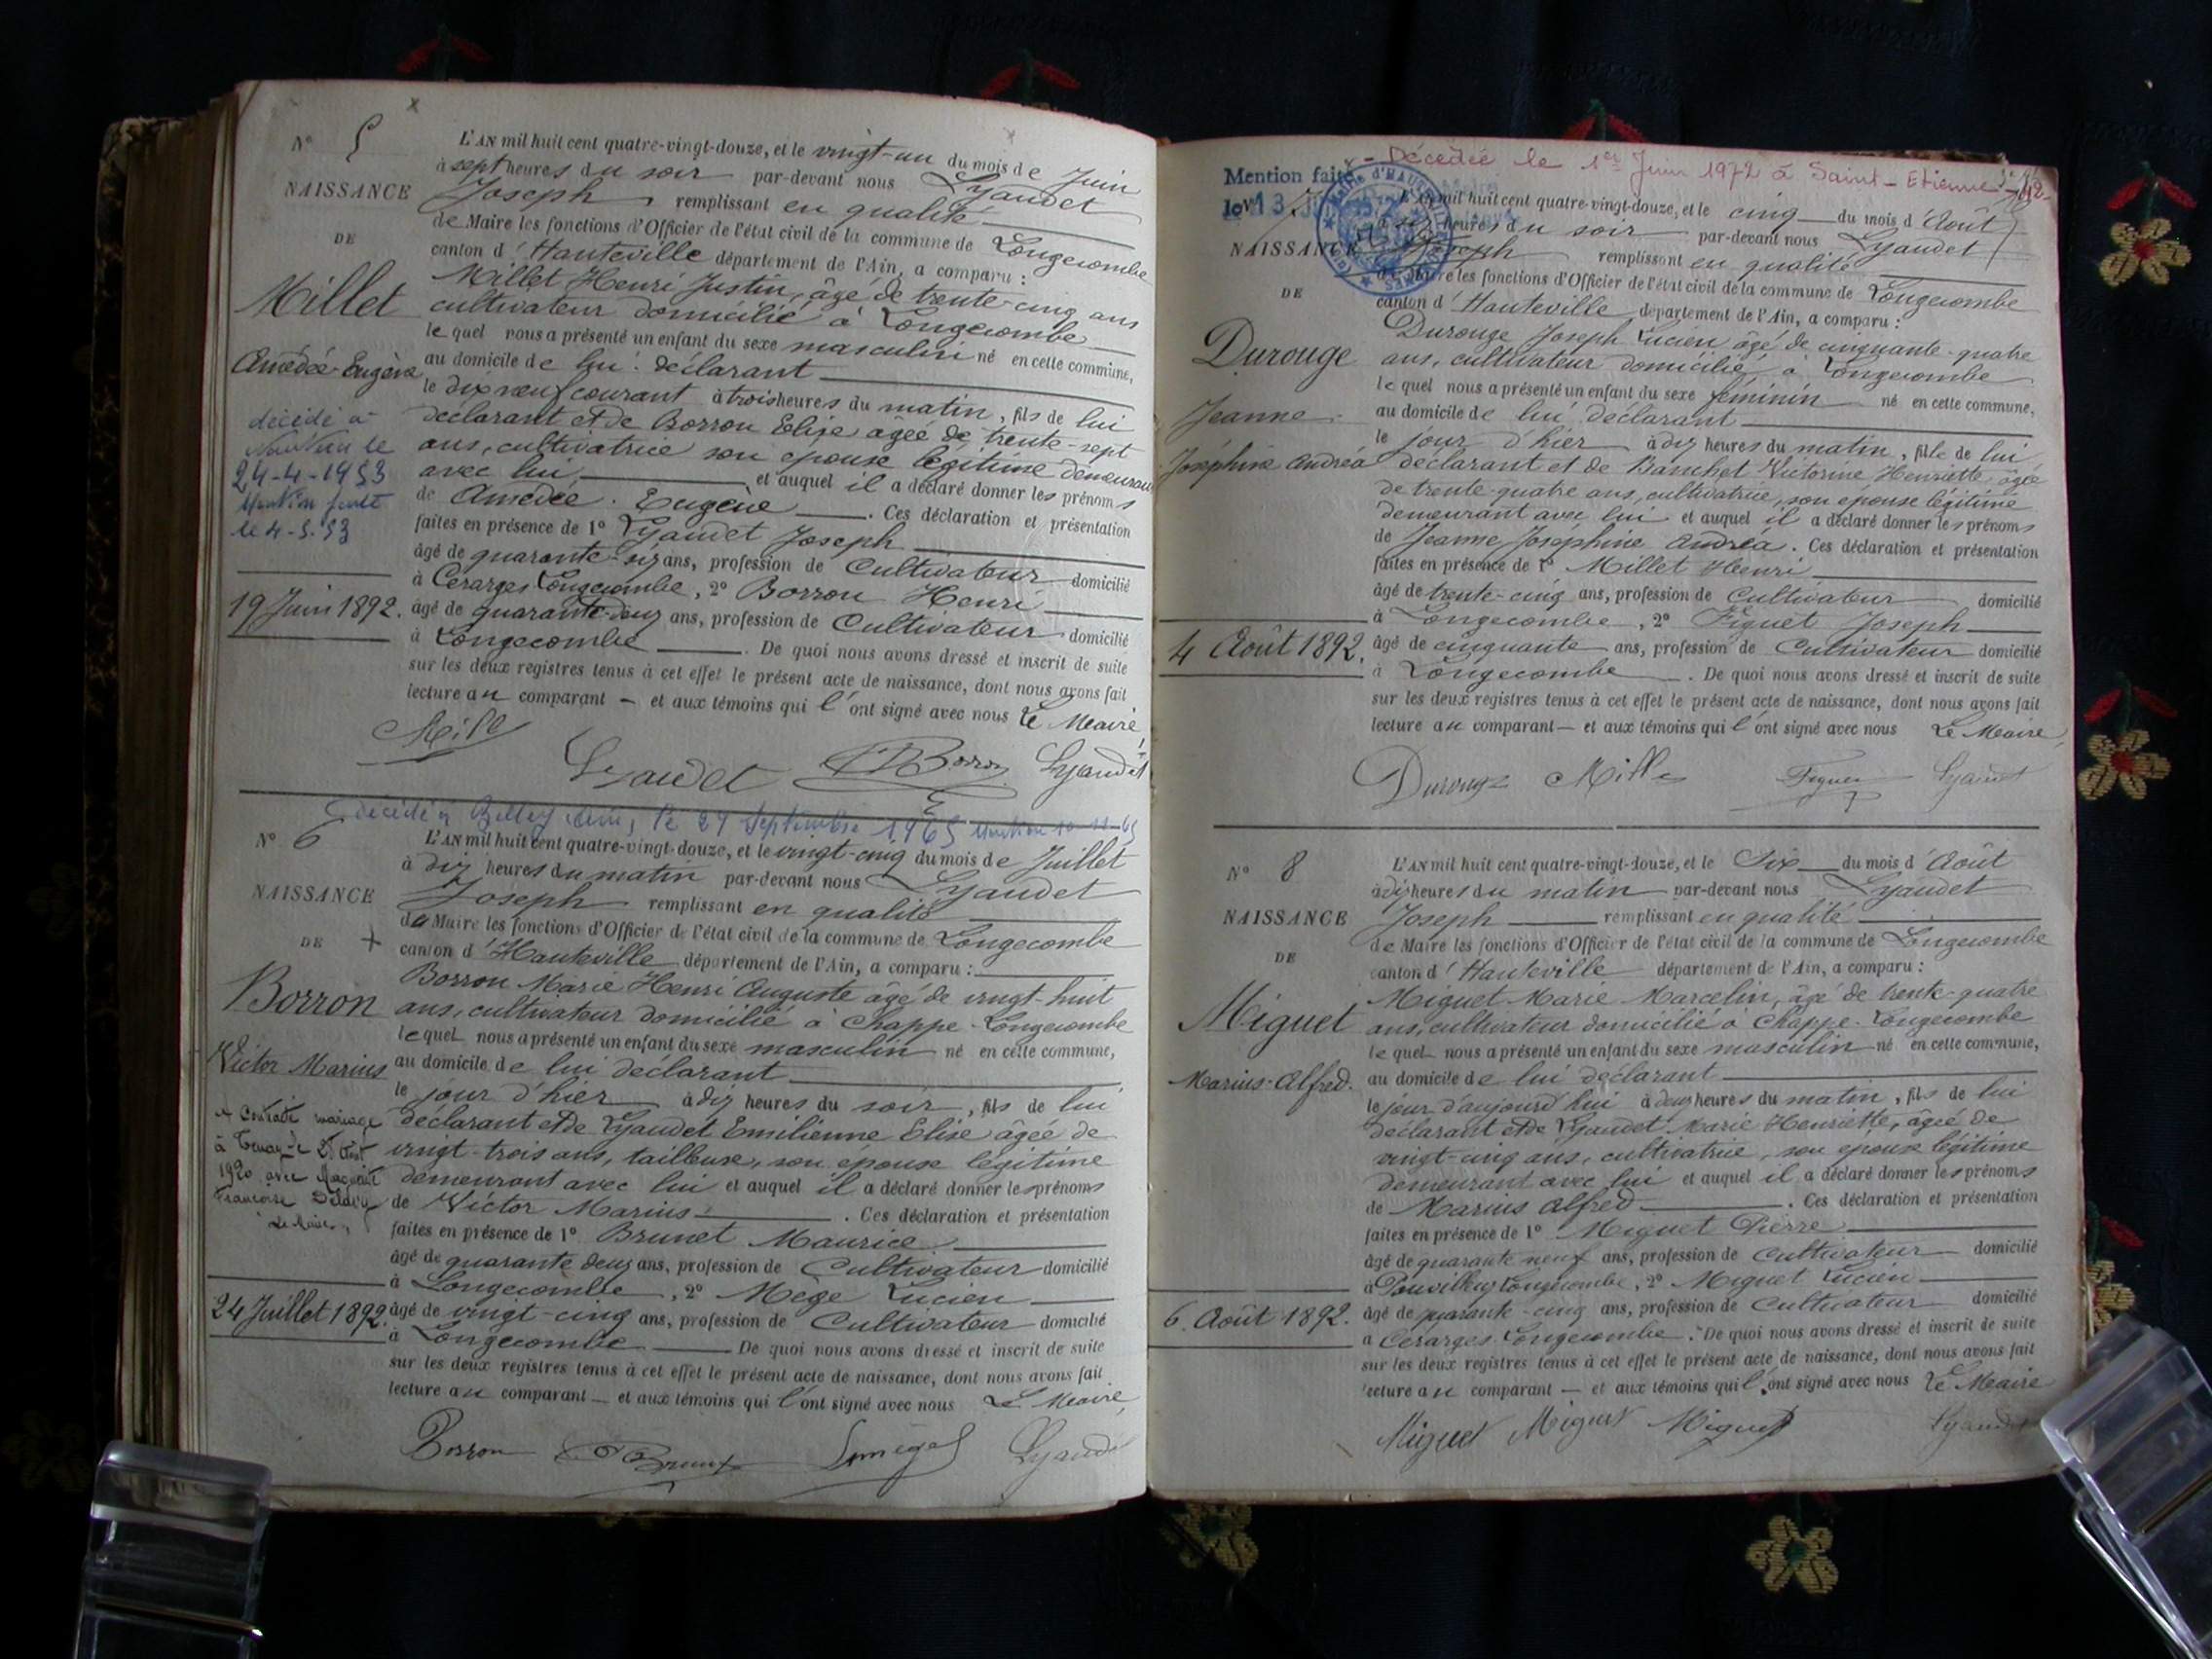 N° 5
NAISSANCE
DE
Millet
Amédée-Eugène
décédé à
le
24-4-1953
Mention faite
le 4-5-53
19 Juin 1892.
L'AN mil huit cent quatre-vingt-douze, et le vingt-un du mois de Juin
à sept heures du soir par-devant nous Lyaudet
Joseph, remplissant en qualité
de Maire les fonctions d'Officier de l'état civil de la commune de Longecombe
canton d'Hauteville département de l'Ain, a comparu :
Millet Henri Justin, âgé de trente-cinq ans
cultivateur domicilié à Longecombe
le quel nous a présenté un enfant du sexe masculin né en cette commune,
au domicile de lui déclarant
le dix neuf courant à trois heures du matin, fils de lui
déclarant et de Borron Elise agée de trente-sept
ans, cultivatrice son epouse légitime demeurant
avec lui et auquel il a déclaré donner les prénoms
de Amédée. Eugène. Ces déclaration et présentation
faites en présence de 1° Lyaudet Joseph
âgé de quarante-six ans, profession de Cultivateur domicilié
à Cerarges Longecombe, 2° Borron Henri
âgé de quarante-deux ans, profession de Cultivateur domicilié
à Longecombe. De quoi nous avons dressé et inscrit de suite
sur les deux registres tenus à cet effet le présent acte de naissance, dont nous avons fait
lecture au comparant – et aux témoins qui l'ont signé avec nous Le Maire,
Mille Lyaudet Borron Lyaudet
décédé à Belley (Ain) le 29 Septembre 1965 Mention 10-11-65
N° 6
NAISSANCE
DE +
Borron
Victor Marius
+ Contracté mariage
à Tenay le 28 Août
1920 avec Marguerite
Françoise
Le Maire,
24 Juillet 1892.
L'AN mil huit cent quatre-vingt-douze, et le vingt-cinq du mois de Juillet
à dix heures du matin par-devant nous Lyaudet
Joseph remplissant en qualité
de Maire les fonctions d'Officier de l'état civil de la commune de Longecombe
canton d'Hauteville département de l'Ain, a comparu :
Borron Marie Henri Auguste âgé de vingt-huit
ans, cultivateur domicilié à Chappe-Longecombe
le quel nous a présenté un enfant du sexe masculin né en cette commune,
au domicile de lui déclarant
le jour d'hier à dix heures du soir, fils de lui
déclarant et de Lyaudet Emilienne Elise âgée de
vingt-trois ans, tailleuse, son épouse légitime
demeurant avec lui et auquel il a déclaré donner les prénoms
de Victor Marius. Ces déclaration et présentation
faites en présence de 1° Brunet Maurice
âgé de quarante deux ans, profession de Cultivateur domicilié
à Longecombe, 2° Mége Lucien
âgé de vingt-cinq ans, profession de Cultivateur domicilié
à Longecombe. De quoi nous avons dressé et inscrit de suite
sur les deux registres tenus à cet effet le présent acte de naissance, dont nous avons fait
lecture au comparant – et aux témoins qui l'ont signé avec nous Le Maire,
Borron Brunet Lyaudet
Décédée le 1er Juin 1972 à Saint-Etienne
Mention faite
le 13
7
NAISSANCE
DE
Durouge
Jeanne
Joséphine Andréa
4 Août 1892.
L'AN mil huit cent quatre-vingt-douze, et le cinq du mois d'Août
heures du soir par-devant nous Lyaudet
Joseph remplissant en qualité
de Maire les fonctions d'Officier de l'état civil de la commune de Longecombe
canton d'Hauteville département de l'Ain, a comparu :
Durouge Joseph Lucien âgé de cinquante-quatre
ans, cultivateur domicilié à Longecombe
le quel nous a présenté un enfant du sexe féminin né en cette commune,
au domicile de lui déclarant
le jour d'hier à dix heures du matin, fille de lui
déclarant et de Banchet Victorine Henriette âgée
de trente-quatre ans, cultivatrice, son épouse légitime
demeurant avec lui et auquel il a déclaré donner les prénoms
de Jeanne Joséphine Andréa. Ces déclaration et présentation
faites en présence de 1° Millet Henri
âgé de trente-cinq ans, profession de Cultivateur domicilié
à Longecombe, 2° Figuet Joseph
âgé de cinquante ans, profession de Cultivateur domicilié
à Longecombe. De quoi nous avons dressé et inscrit de suite
sur les deux registres tenus à cet effet le présent acte de naissance, dont nous avons fait
lecture au comparant – et aux témoins qui l'ont signé avec nous Le Maire,
Durouge Mille Figuet Lyaudet
N° 8
NAISSANCE
DE
Miguet
Marius-Alfred.
6. Août 1892.
L'AN mil huit cent quatre-vingt-douze, et le Six du mois d'Août
à dix heures du matin par-devant nous Lyaudet
Joseph remplissant en qualité
de Maire les fonctions d'Officier de l'état civil de la commune de Longecombe
canton d'Hauteville département de l'Ain, a comparu :
Miguet Marie Marcelin, âgé de trente-quatre
ans, cultivateur domicilié à Chappe-Longecombe
le quel nous a présenté un enfant du sexe masculin né en cette commune,
au domicile de lui déclarant
le jour d'aujourd'hui à deux heures du matin, fils de lui
déclarant et de Lyaudet Marie Henriette, âgée de
vingt-cinq ans, cultivatrice, son épouse légitime
demeurant avec lui et auquel il a déclaré donner les prénoms
de Marius Alfred. Ces déclaration et présentation
faites en présence de 1° Miguet Pierre
âgé de quarante neuf ans, profession de Cultivateur domicilié
à Longecombe, 2° Miguet Lucien
âgé de quarante-cinq ans, profession de Cultivateur domicilié
à Cerarges Longecombe. De quoi nous avons dressé et inscrit de suite
sur les deux registres tenus à cet effet le présent acte de naissance, dont nous avons fait
lecture au comparant – et aux témoins qui l'ont signé avec nous Le Maire
Miguet Miguet Miguet Lyaudet